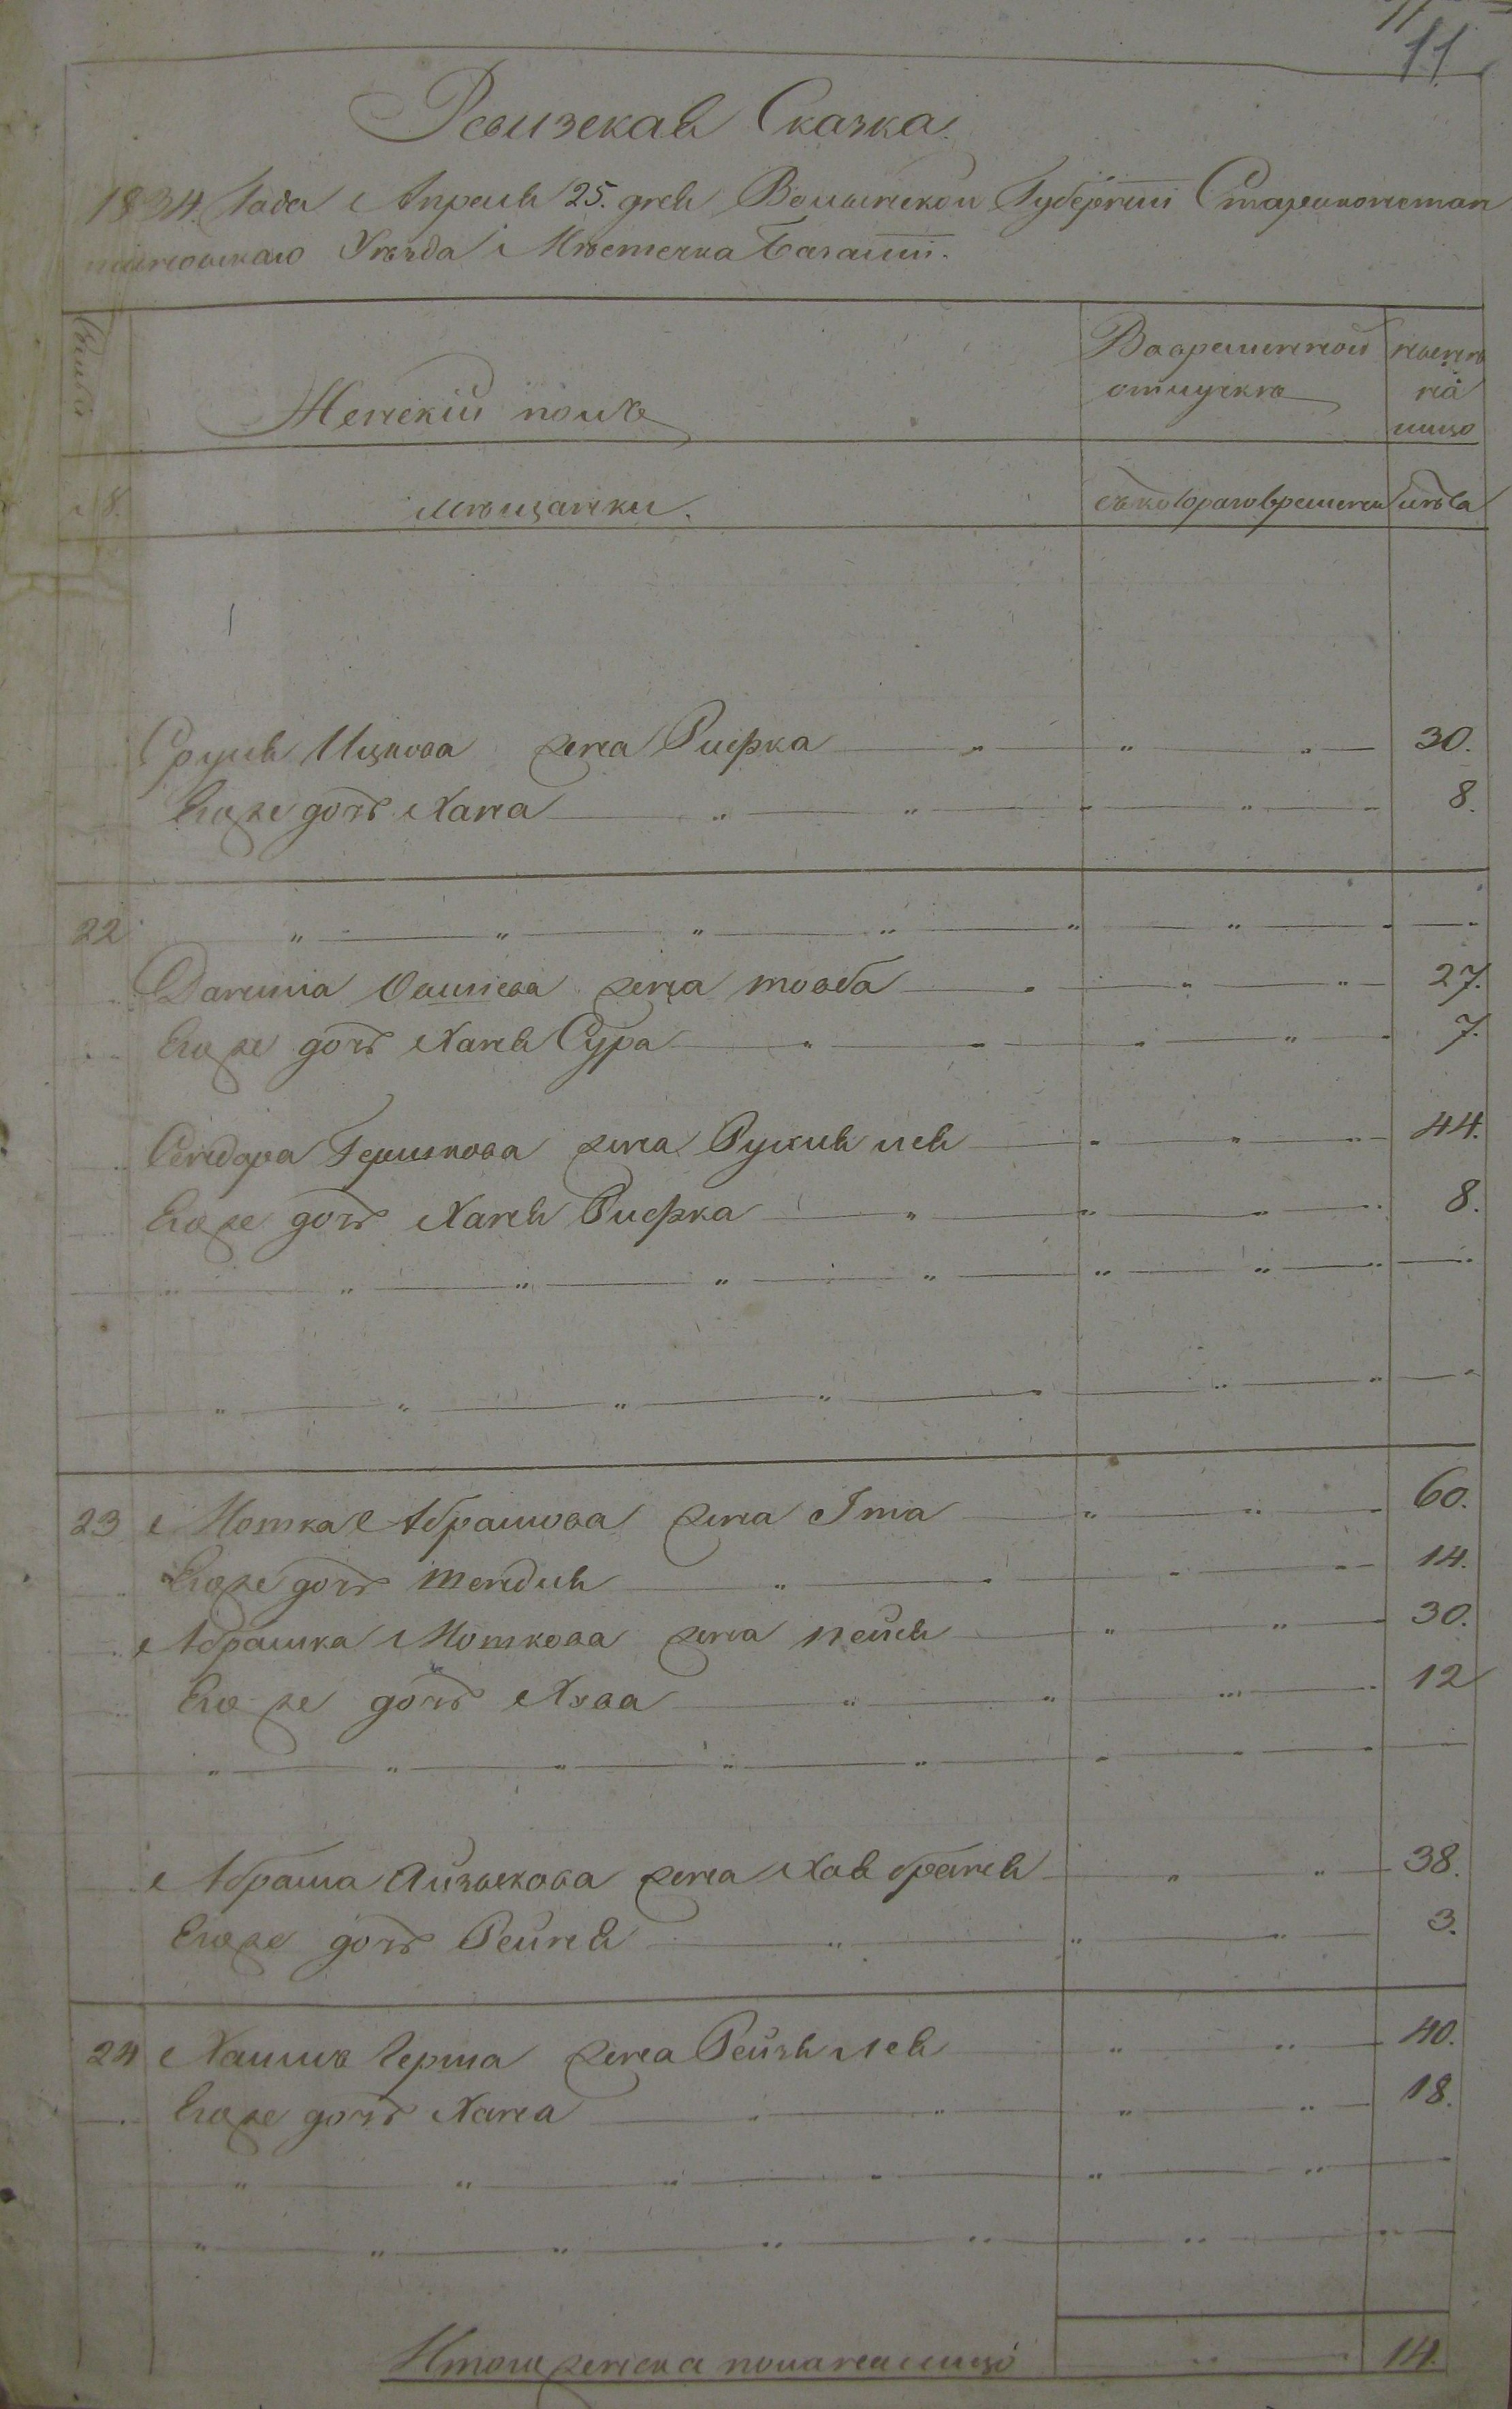 11
Ревизская Сказка.
1834. Года Апреля 25. дня Волынской Губерніи Староконстан
тиновскаго Уѣзда Мѣстечка Базаліи.
Семьи
Женскій полъ
Во временной
отлучкѣ
нынѣ
на
лицо
№
мѣщанки.
съ котораго времени
лѣта
Сруля Ицкова жена Рифка 30.
Его же дочь Хана 8.
22
Даниила жена товба 27.
Его же дочь Ханя Сура 7.
Сендера Гершкова жена Рухля лея 44.
Его же дочь Ханя Рифка 8.
23 Мотка Абрамова жена Ита 60.
Его же дочь шендля 14.
Абрамка Моткова жена пейся 30.
Его же дочь Хова 12
Абрама Айзыкова жена Хая браня 38.
Его же дочь Рейня 3.
24 Хаима герша жена Рейзя лея 40.
Его же дочь Хана 18.
Итого женска пола на лицо 14.